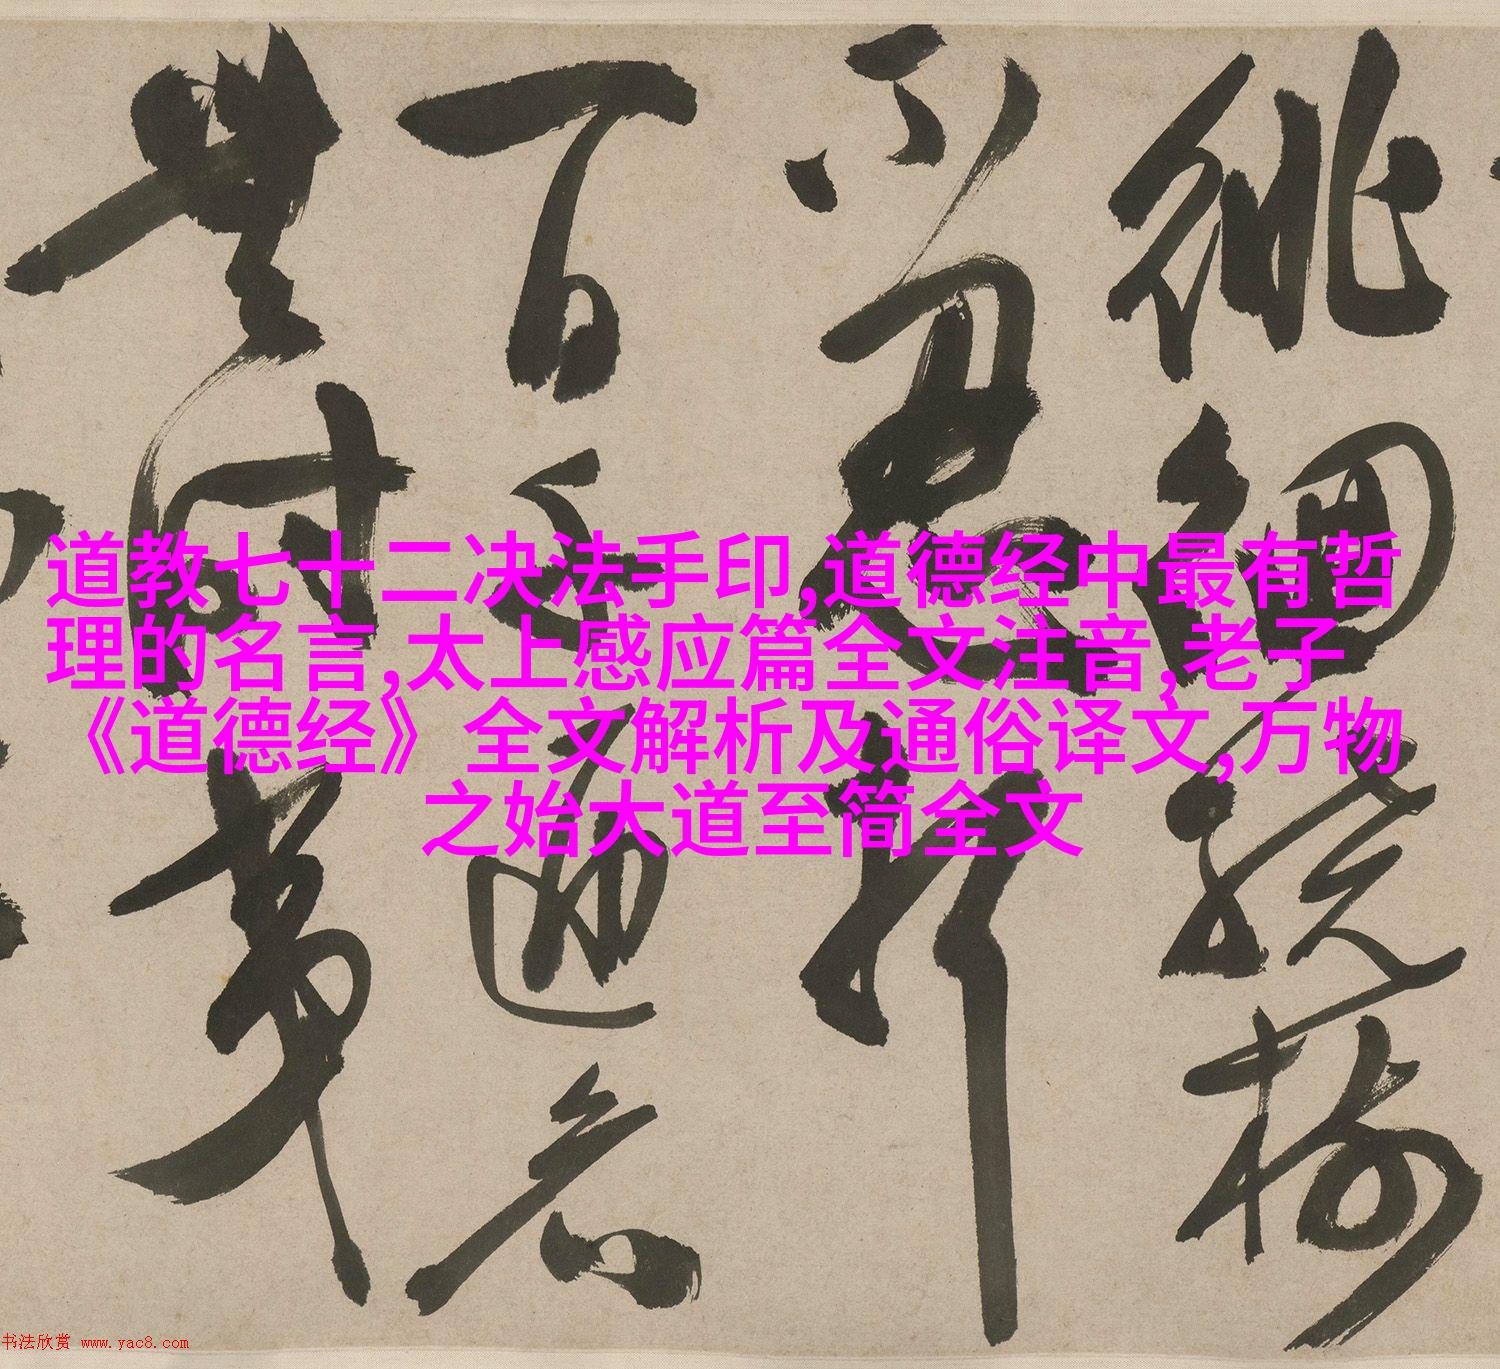 徘徊繞樹
不忍折
一日千迊看
無時夷
道教七十二决法手印,道德经中最有哲
理的名言,太上感应篇全文注音,老子
《道德经》全文解析及通俗译文,万物
之始大道至简全文
书法欣赏 www.yac8.com